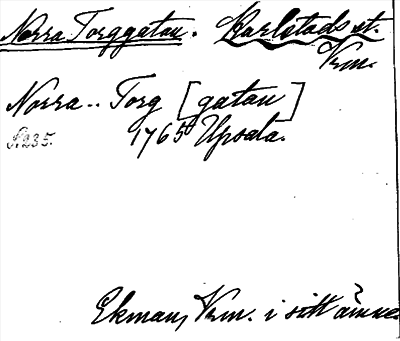 Norra Torggatan. Karlstads st.
Vrm.
Norra - - Torg [gatan]
S. 235. 1765 Upsala.
Ekman, Vrm. i sitt ämne